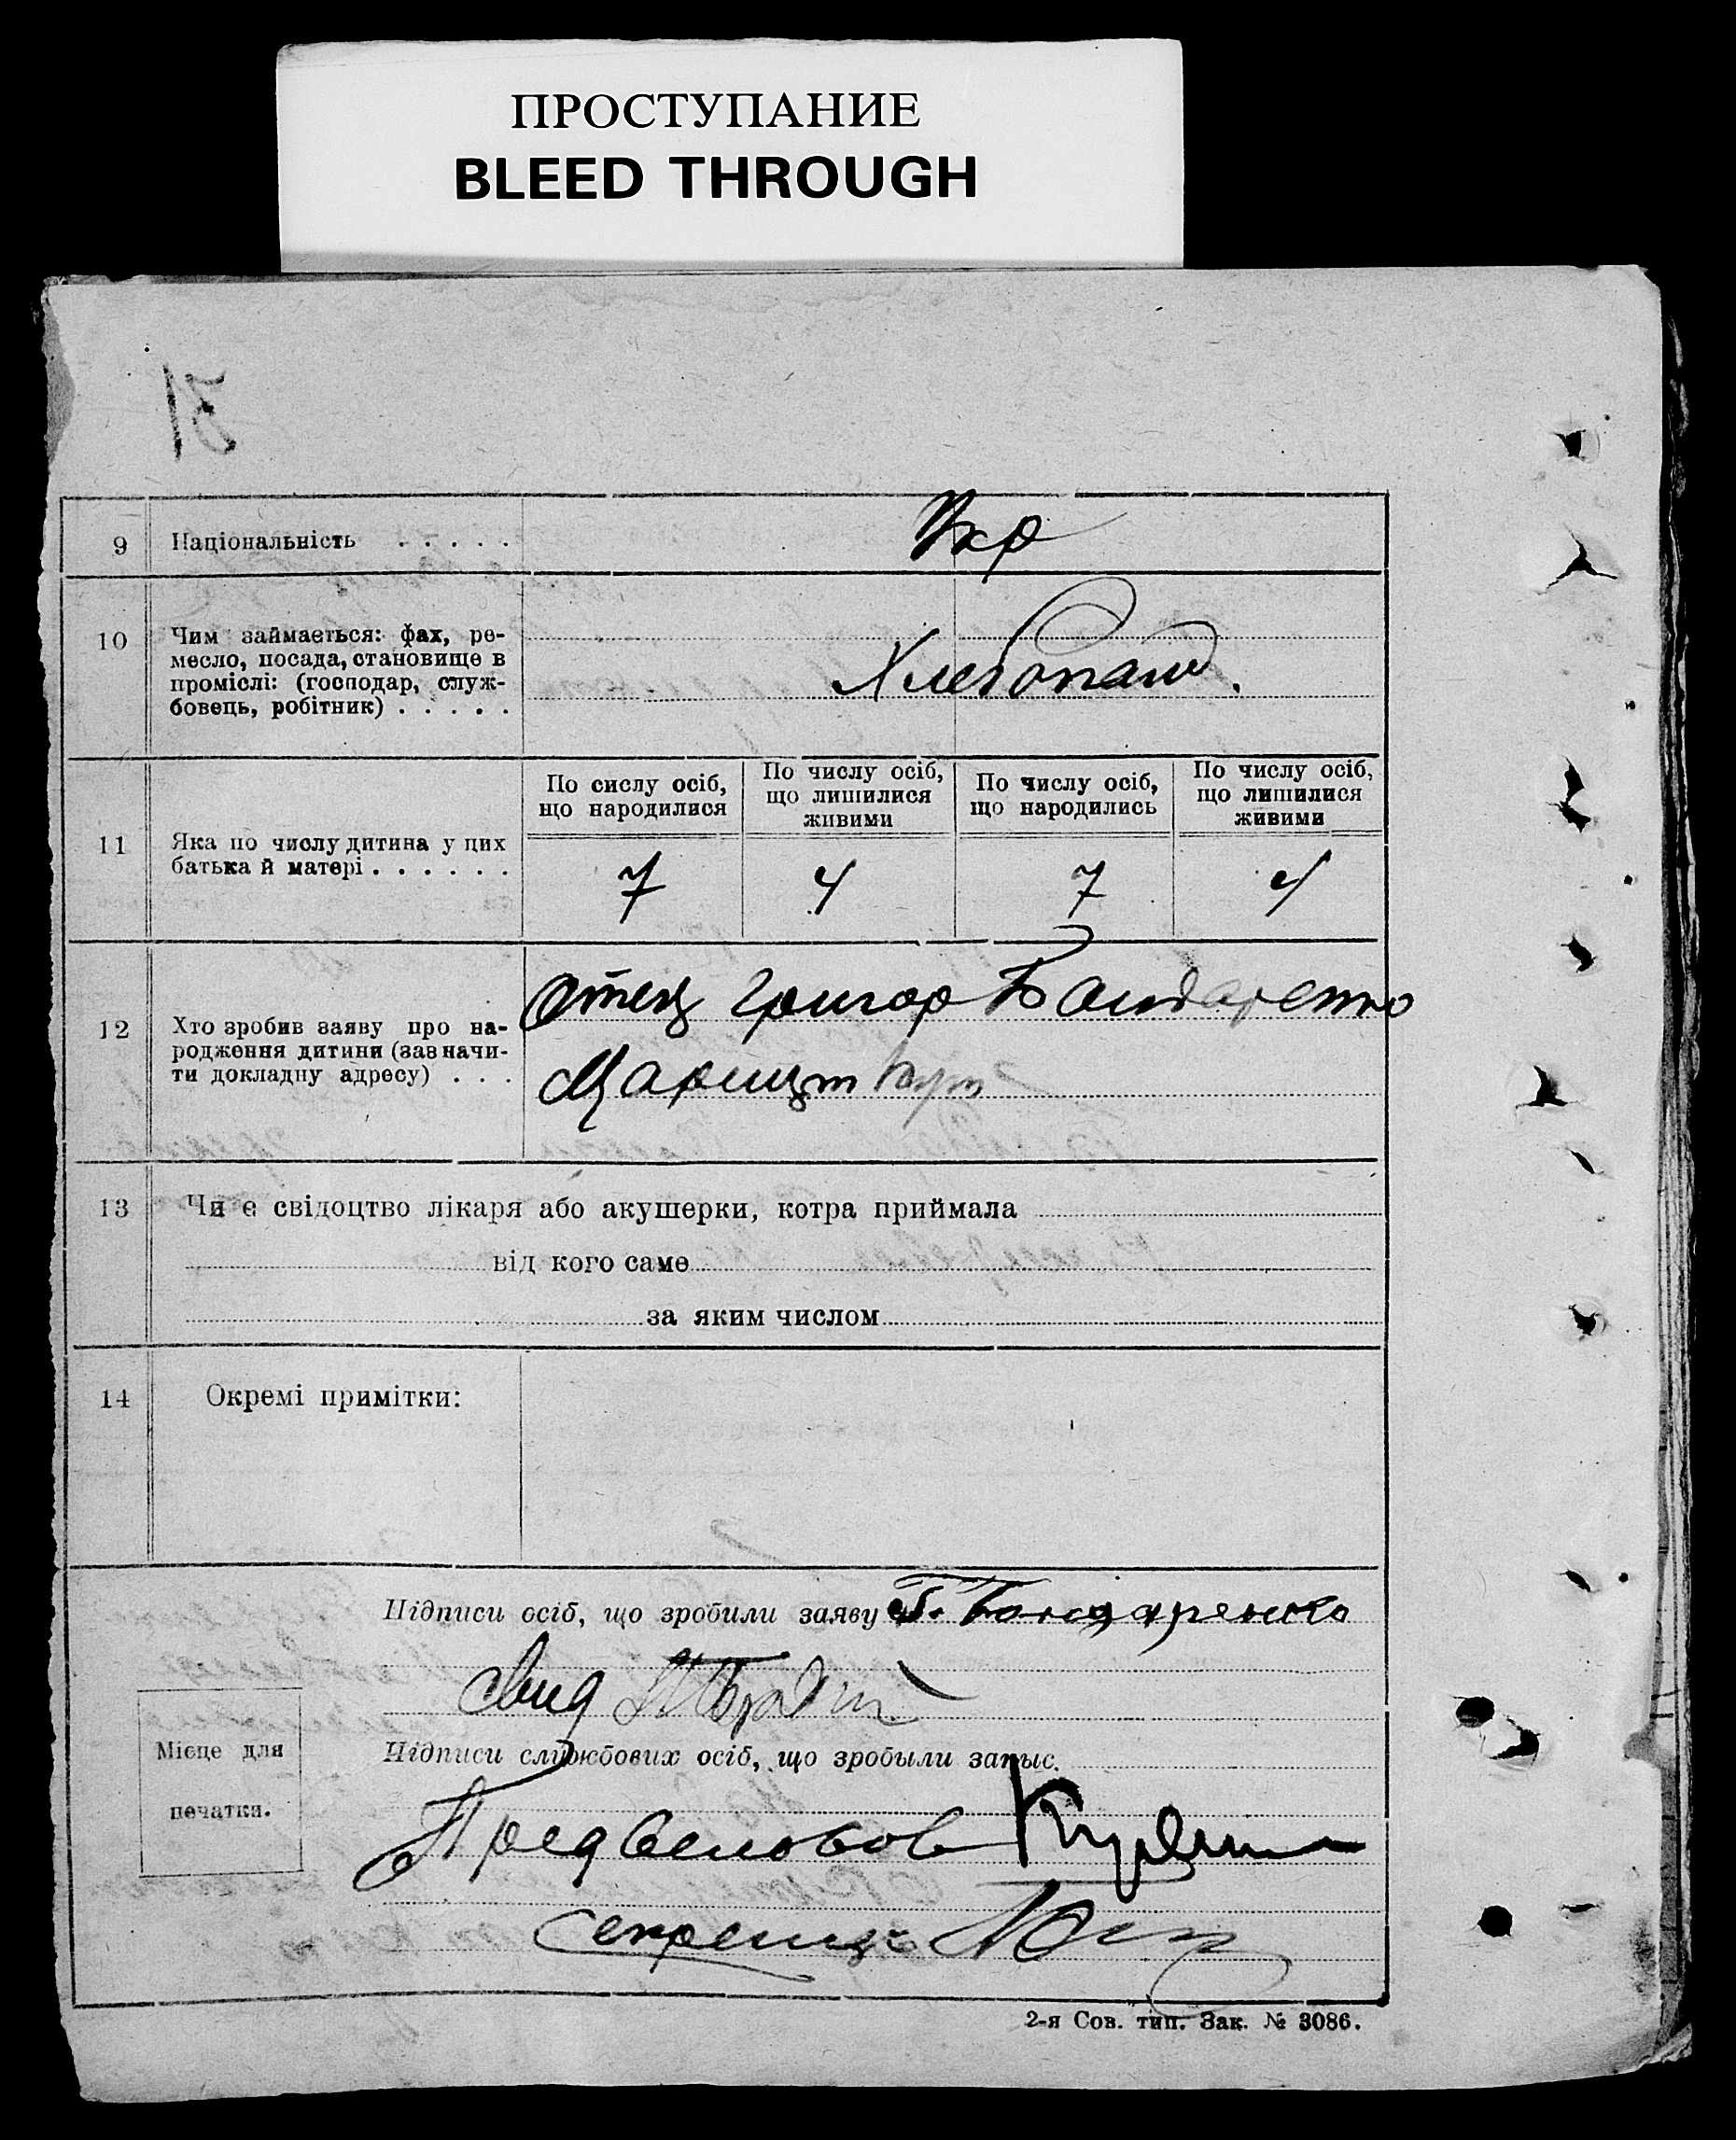 ПРОСТУПАНИЕ
BLEED THROUGH
31
9 Національність . . . . . Укр
10 Чим займається: фах, ре-
месло, посада, становище в
проміслі: (господар, служ-
бовець, робітник) . . . . .
Хлебопаш.
11 Яка по числу дитина у цих
батька й матері . . . . . .
По сислу осіб,
що народилися
По числу осіб,
що лишилися
живими
По числу осіб,
що народились
По числу осіб,
що лишилися
живими
7 4 7 4
12 Хто зробив заяву про на-
родження дитини (зазначи-
ти докладну адресу) . . .
Отец Григор Бондаренко
Марицт Кут
13 Чи є свідоцтво лікаря або акушерки, котра приймала
від кого саме
за яким числом
14 Окремі примітки:
Підписи осіб, що зробили заяву Г. Бондаренко
Свид
Підписи службових осіб, що зробыли запыс.
Місце для
печатки.
Пред
Секретар
2-я Сов. тип. Зак. № 3086.